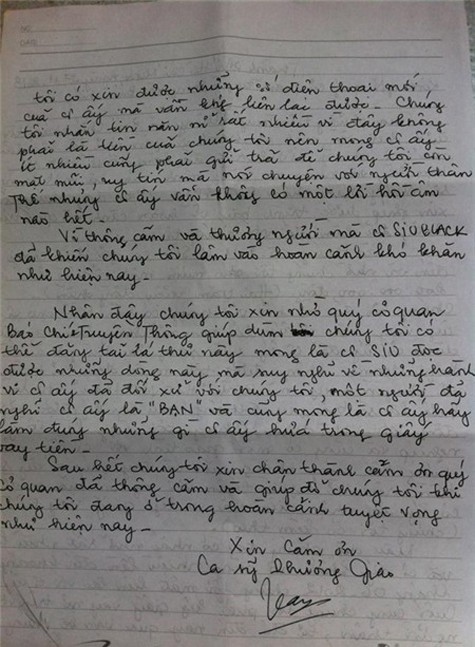 tôi có xin được những số điện thoại mới
của cô ấy mà vẫn không liên lạc được. Chúng
tôi nhắn tin năn nỉ rất nhiều vì đây không
phải là tiền của chúng tôi nên mong cô ấy
ít nhiều cũng phải gửi trả để chúng tôi còn
mặt mũi, uy tín mà nói chuyện với người thân
Thế nhưng cô ấy vẫn không có một lời hồi âm
nào hết.
Vì thông cảm và thương người mà cô SIU BLACK
đã khiến chúng tôi lâm vào hoàn cảnh khó khăn
như hiện nay.
Nhân đây chúng tôi xin nhờ quý cơ quan
Báo Chí Truyền Thông giúp dùm chúng tôi có
thể đăng tải lá thư này mong là cô SIU đọc
được những dòng này mà suy nghĩ về những hành
vi cô ấy đã đối xử với chúng tôi, một người đã
nghĩ cô ấy là "BẠN" và cũng mong là cô ấy hãy
làm đúng những gì cô ấy hứa trong giấy
vay tiền.
Sau hết chúng tôi xin chân thành cảm ơn quý
cơ quan đã thông cảm và giúp đỡ chúng tôi khi
chúng tôi đang ở trong hoàn cảnh tuyệt vọng
như hiện nay.
Xin Cảm ơn
Ca sỹ Phương Giao